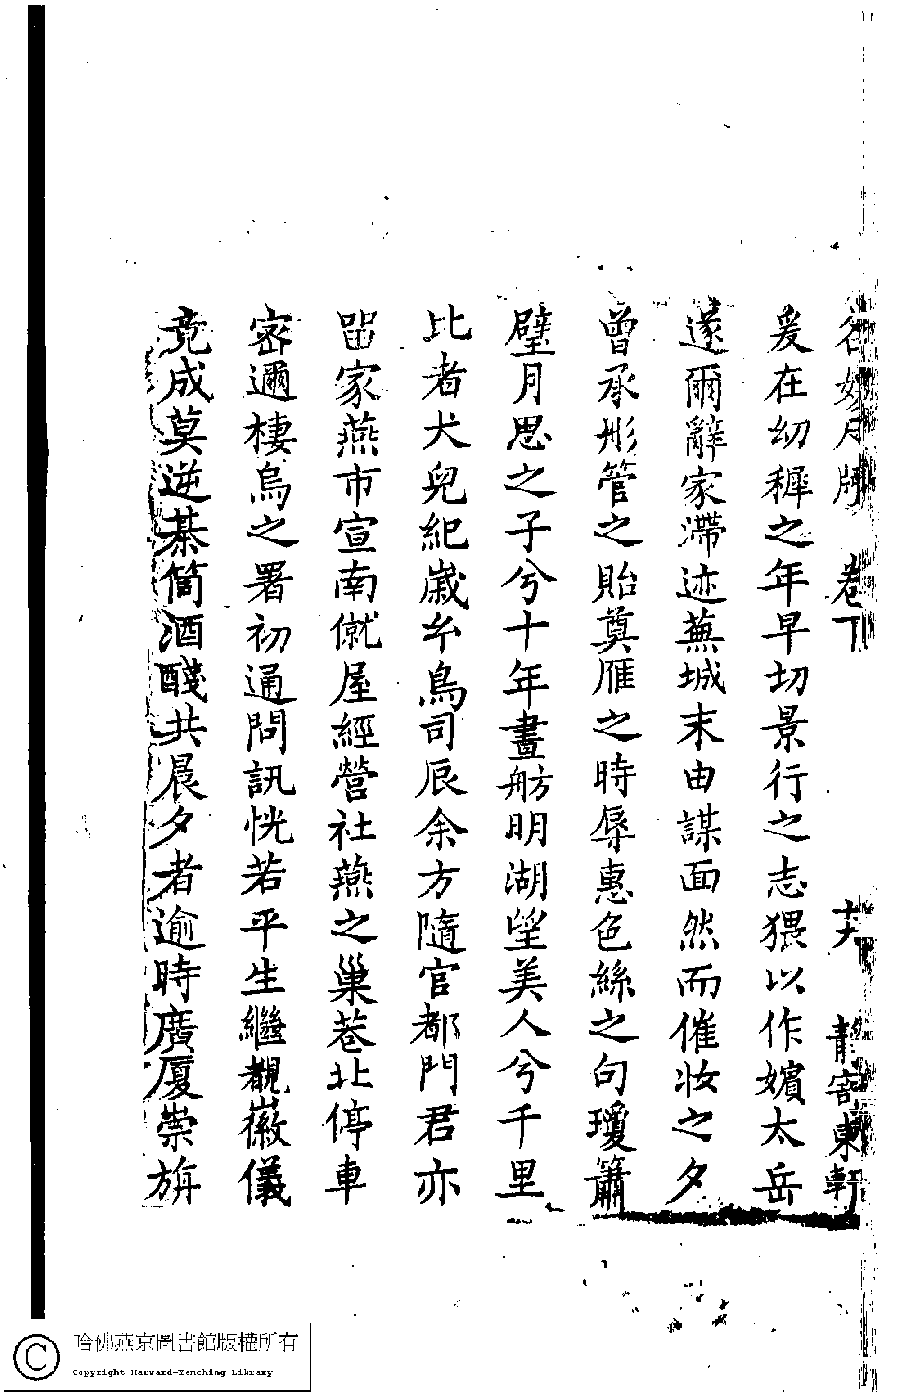 卷下
靜寄東軒
爰在幼穉之年早切景行之志猥以作嬪太岳
遂爾辭家滯迹蕪城末由謀面然而催妆之夕
曾承彤管之貽奠雁之時辱惠色絲之句瓊簫
璧月思之子兮十年畫舫明湖望美人兮千里
比者犬兒紀歲幺鳥司辰余方隨官都門君亦
畱家燕市宣南僦屋經營社燕之巢巷北停車
密邇棲烏之署初通問訊恍若平生繼覩徽儀
竟成莫逆棊筒酒醆共晨夕者逾時廣厦崇旃
哈佛燕京圖書館版權所有
Copyright Harvard-Yenching Library